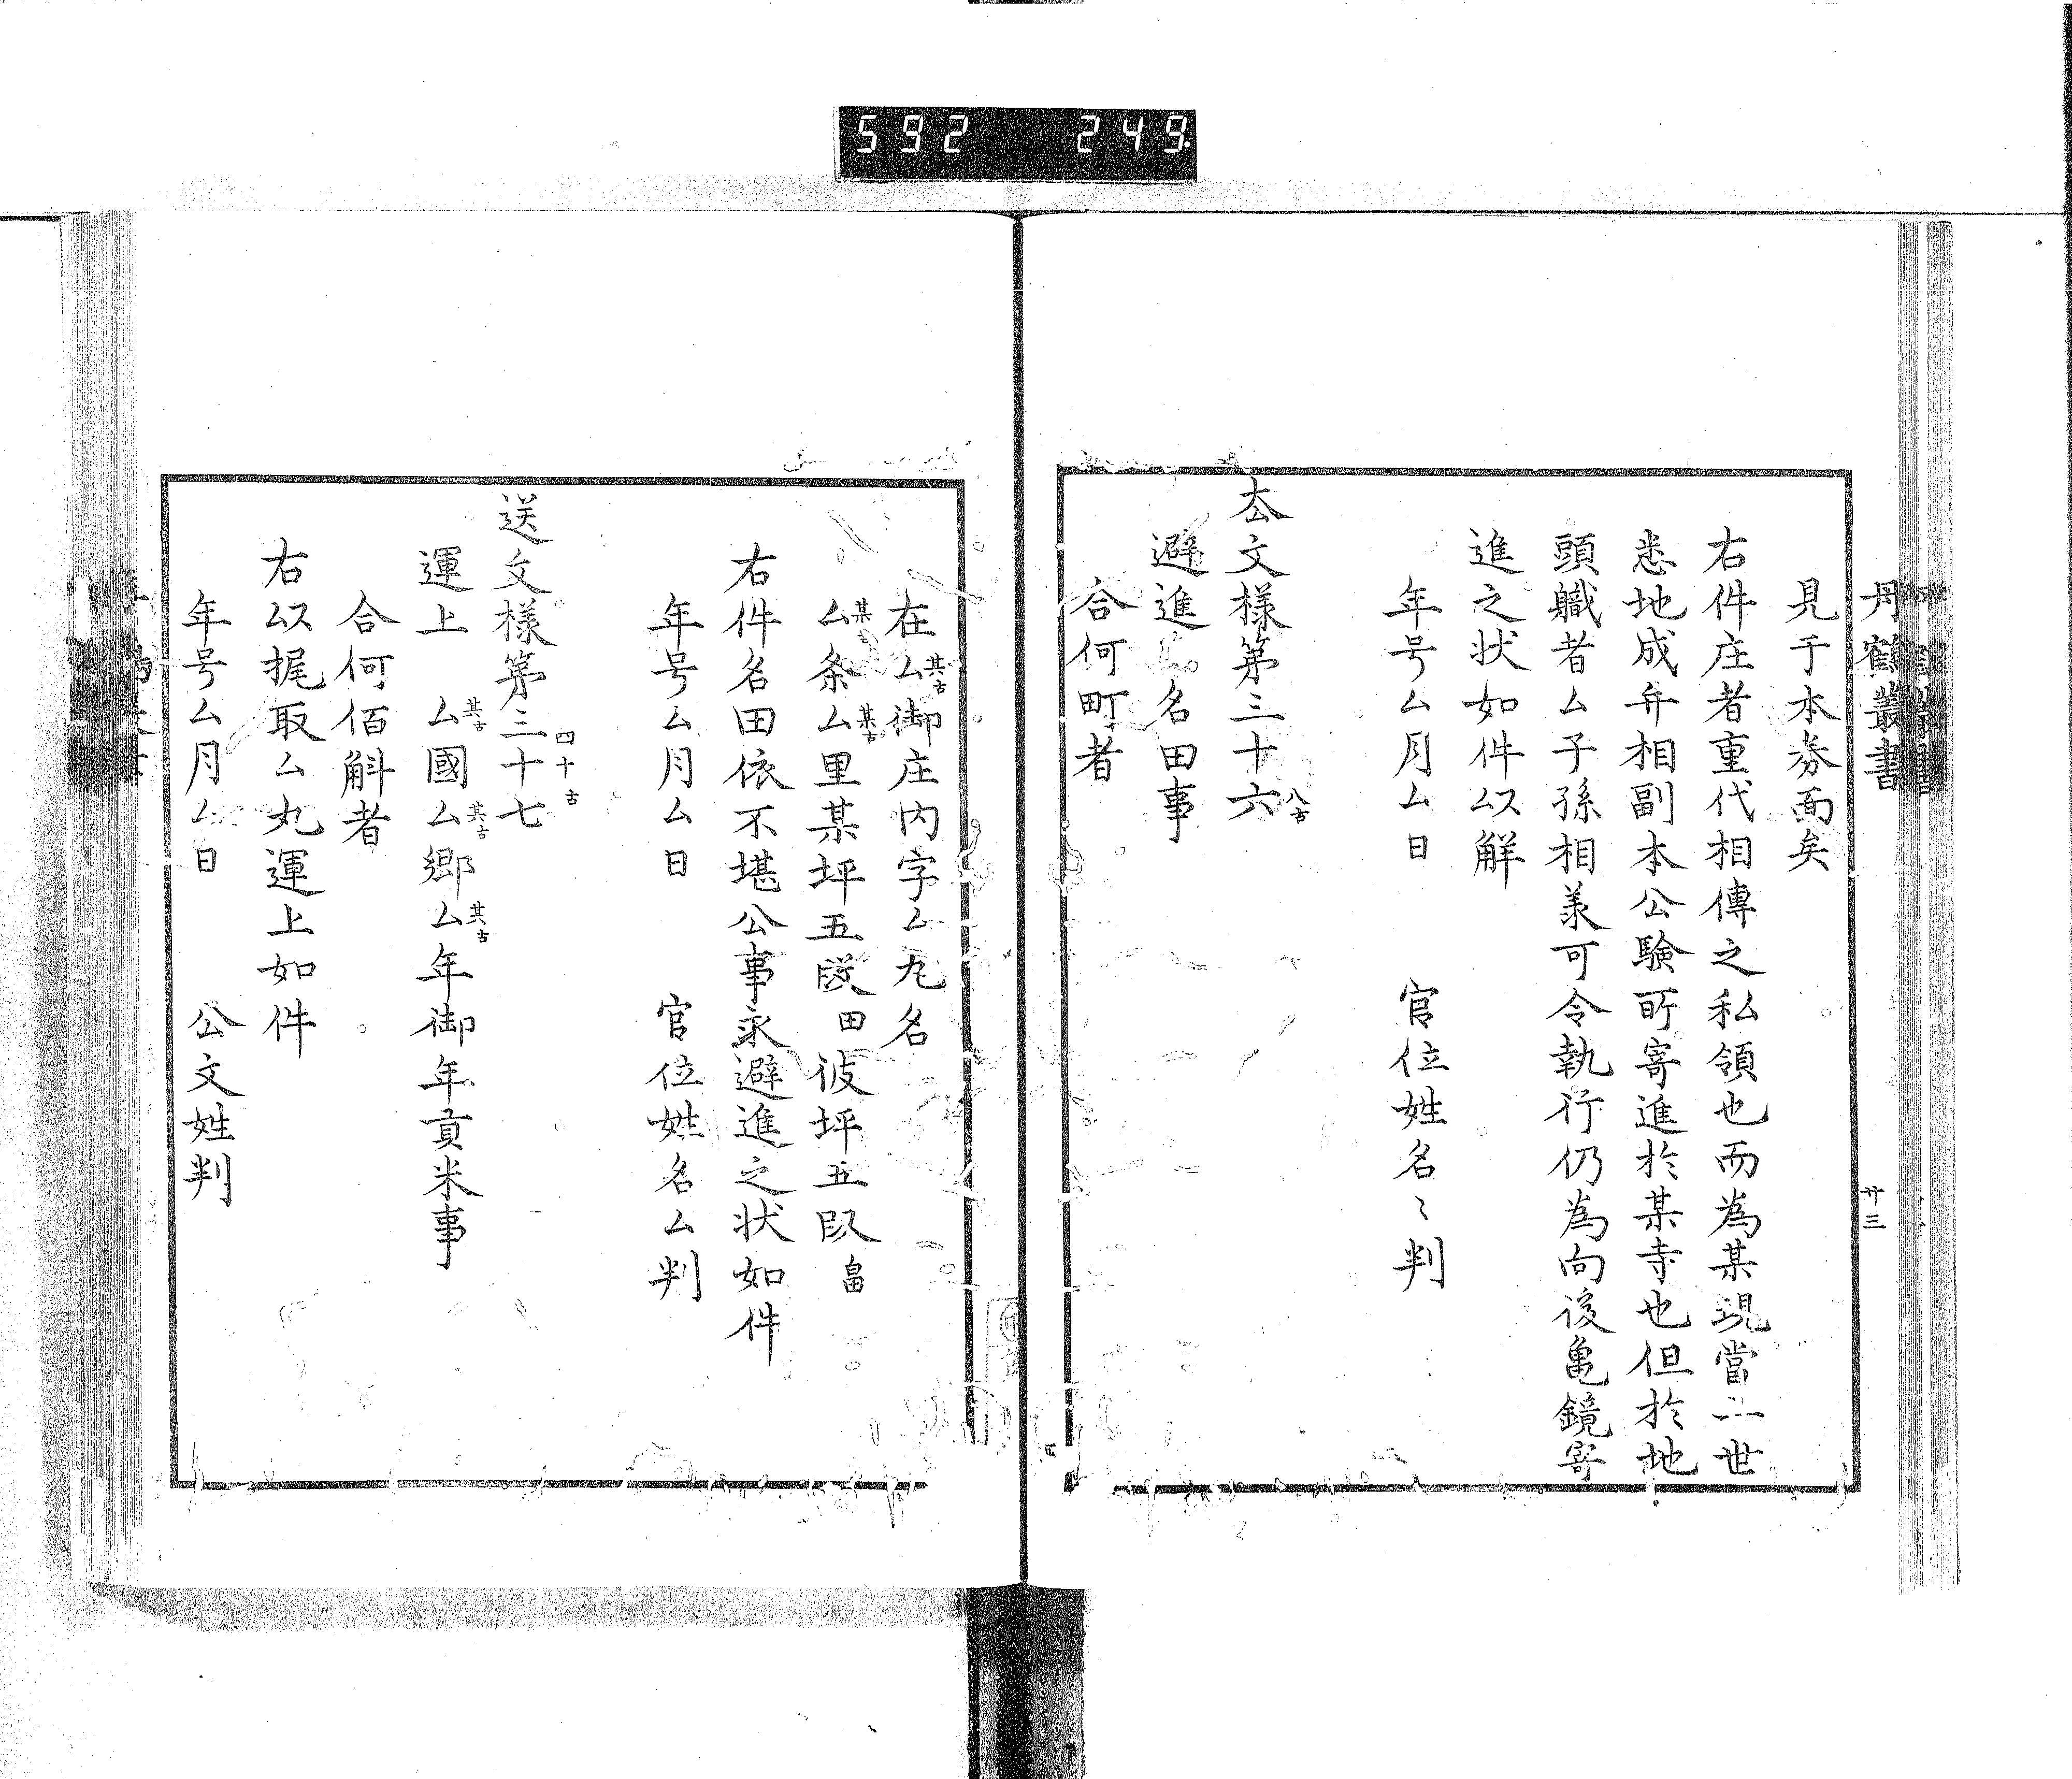 592 249
丹鶴叢書
廿三
見于本券面矣
右件庄者重代相傳之私領也而為某現當二世
悉地成弁相副本公驗所寄進於某寺也但於地
頭職者ム子孫相承可令執行仍為向後亀鏡寄
進之状如件以解
年号ム月ム日 官位姓名〻判
厺文様第三十六
八古
避進 名田事
合何町者
在ム御庄内字ム九名
其古
ム条ム里某坪五段田彼坪五段畠
某古 某古
右件名田依不堪公事永避進之状如件
年号ム月ム日 官位姓名ム判
送文様第三十七
四十古
運上 ム國ム郷ム年御年貢米事
其古 其古 其古
合何佰斛者
右以挽取ム丸運上如件
年号ム月ム日 公文姓判